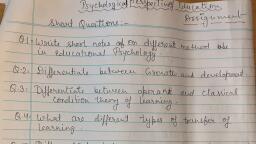 Psychological Perspective of Education
Assignment
Short Questions:-
Q.1- Write short notes of on different method
in Educational Psychology
Q.2. Differentiate between Growth and development
Q.3. Differentiate between operant and classical
condition theory of learning.
Q.4. What are different types of transfer of
learning.